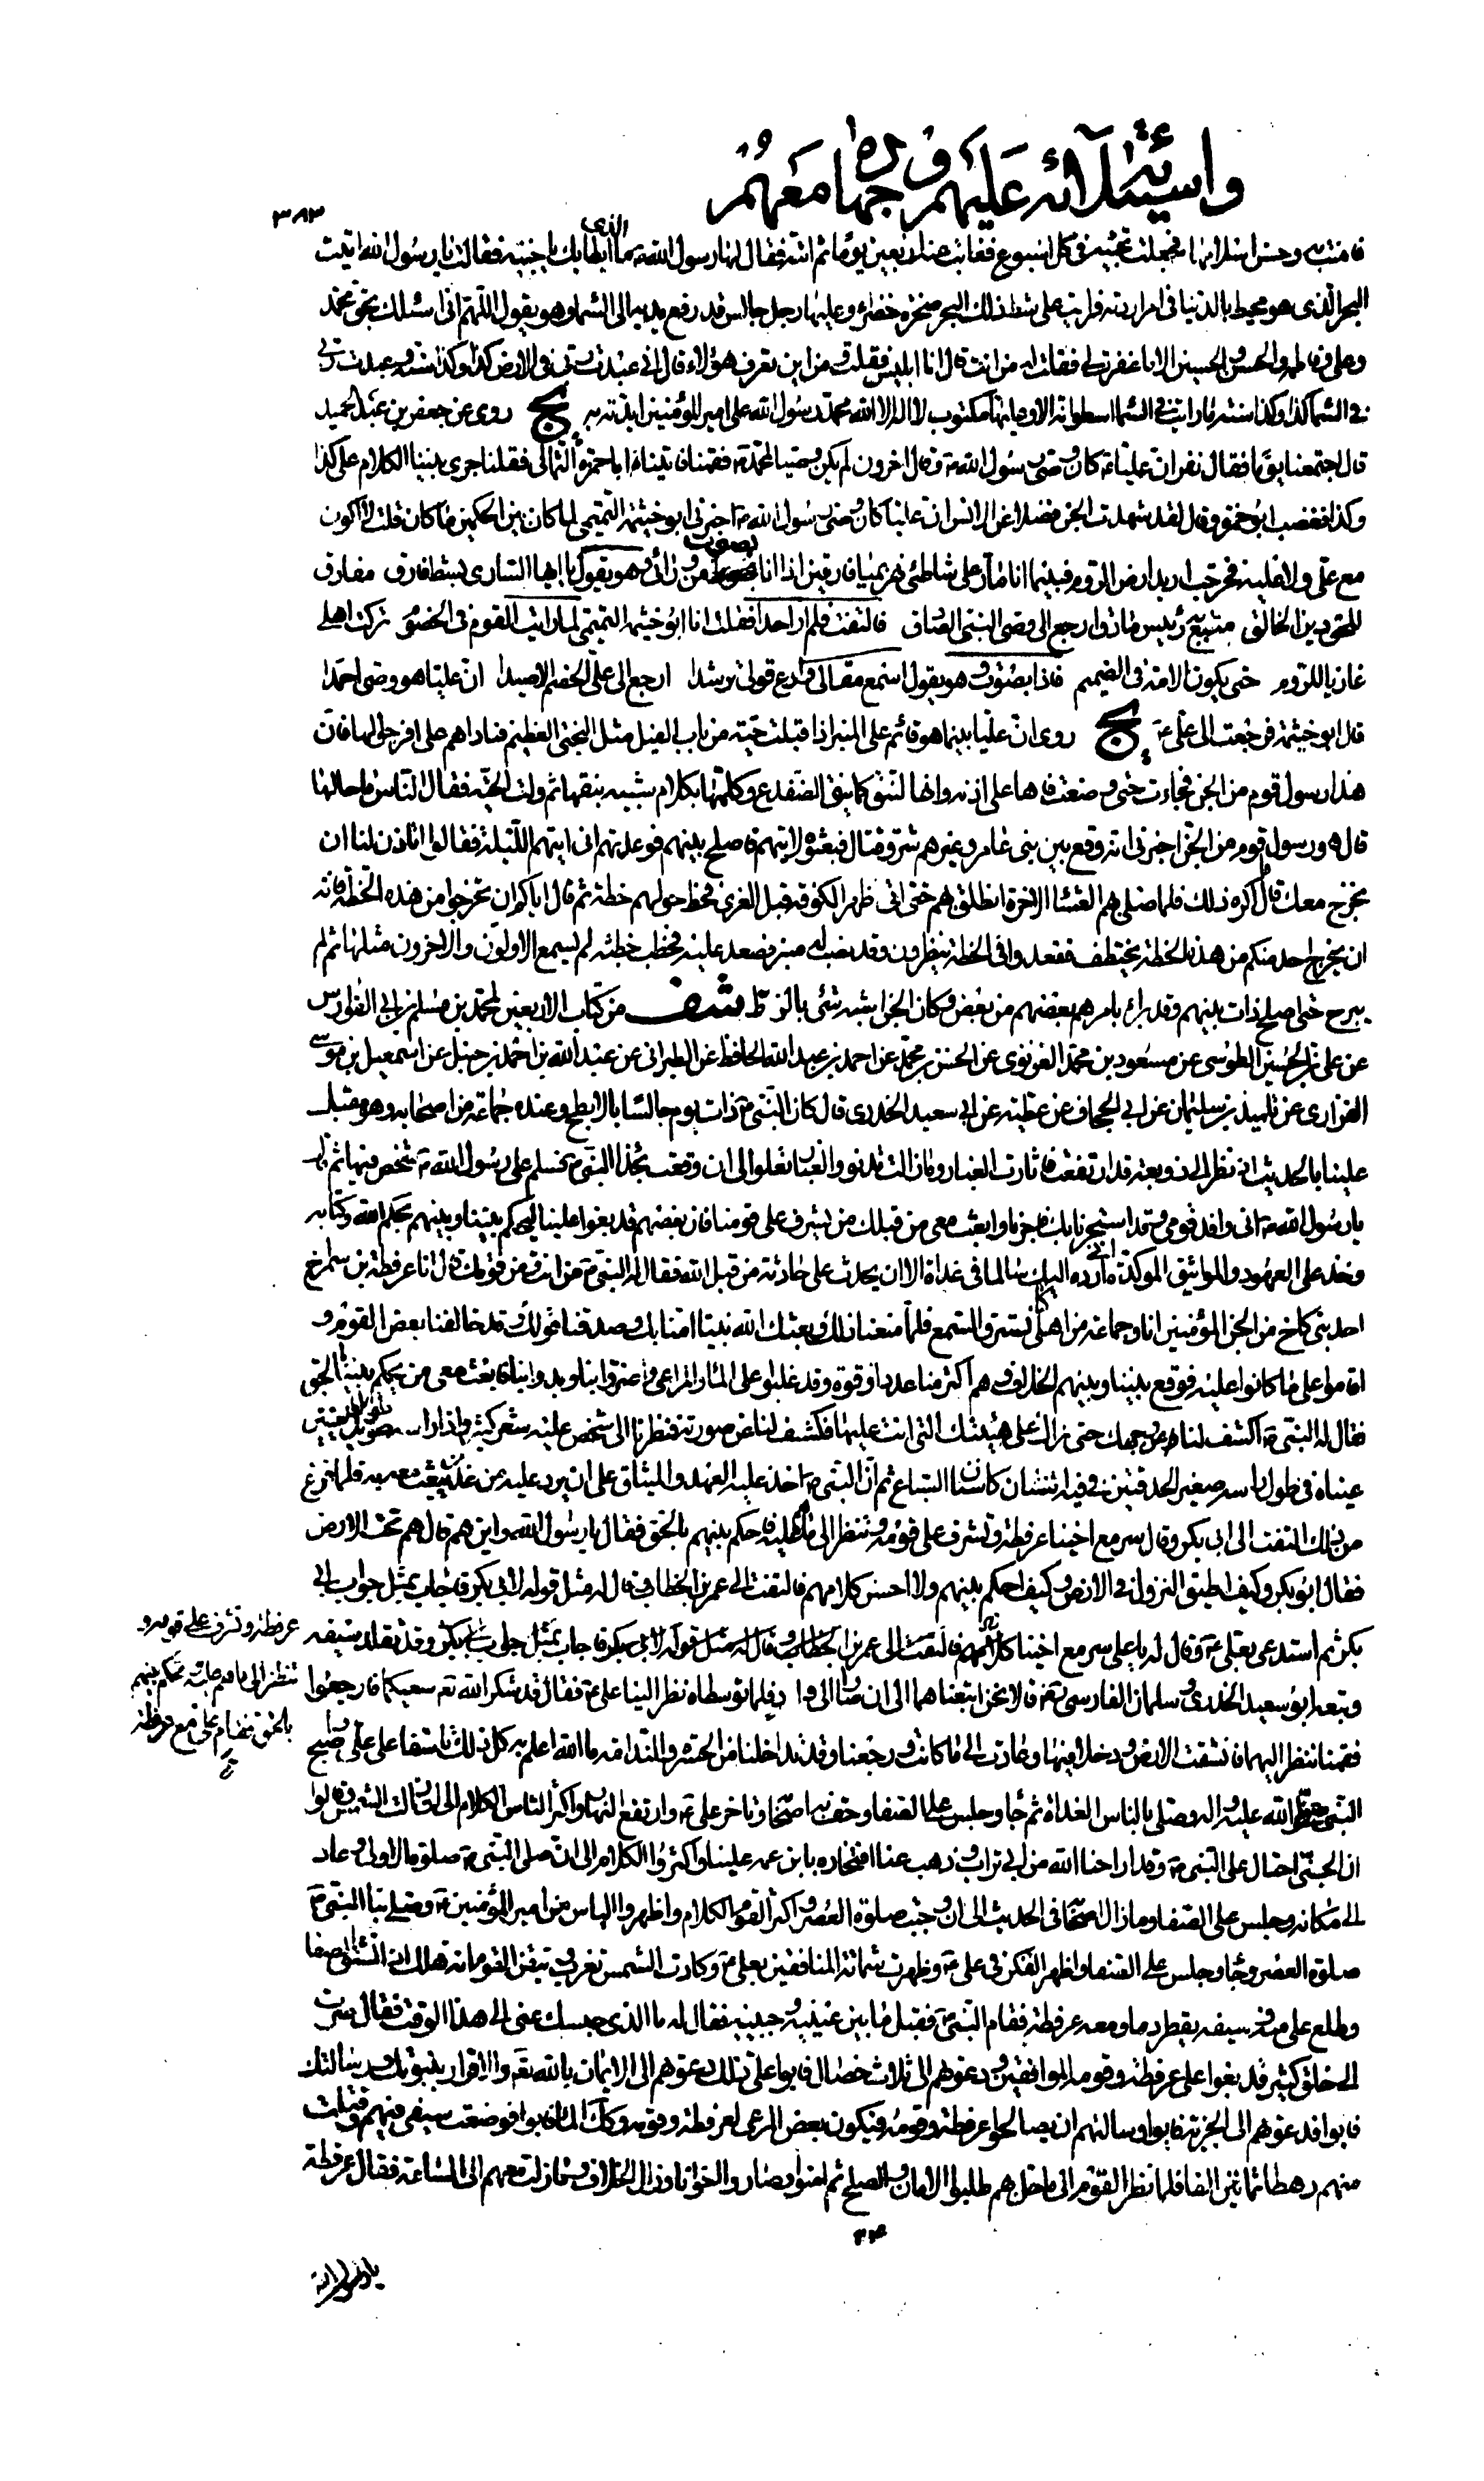 واستيلائه عليهم وجهاده معهم
٣٨٣
فامنت به وحسن اسلامها فجعلت تجيئه في كل اسبوع فغابت عنه اربعين يوما ثم اتته فقال لها رسول الله ص ما الذي ابطا بك يا جنية فقالت يا رسول الله اتيت
البحر الذي هو محيط بالدنيا في امر اردته فرايت على شط ذلك البحر صخرة خضراء وعليها رجل جالس قد رفع يديه الى السماء وهو يقول اللهم اني اسئلك بحق محمد
وعلي وفاطمة والحسن والحسين الا ما غفرت لي فقلت له من انت قال انا ابليس فقلت ومن اين تعرف هؤلاء قال اني عبدت ربي في الارض كذا وكذا سنة وعبدت ربي
في السماء كذا وكذا سنة ما رايت في السماء اسطوانة الا وعليها مكتوب لا اله الا الله محمد رسول الله علي امير المؤمنين ايدته به يج روي عن جعفر بن عبد الحميد
قال اجتمعنا يوما فقال نفر ان عليا ع كان وصي رسول الله ص وقال اخرون لم يكن وصيا لمحمد ص فقمنا فاتيناه ابا حمزة الثمالي فقلنا جرى بيننا الكلام على كذا
وكذا فغضب ابو حمزة وقال لقد شهدت الجن فضلا عن الانس ان عليا كان وصي رسول الله ص اخبرني ابو خيثمة التميمي لما كان بين الحكمين ما كان قلت لا اكون
مع علي ولا عليه فخرجت اريد ارض الروم فبينما انا مار على شاطئ نهر بميافارقين اذا انا بصوت من ورائي وهو يقول يا ايها الساري بشط فارق مفارق
للحق دين الخالق متبع به رئيس مارق ارجع الى وصي النبي الصادق فالتفت فلم ار احدا فقلت انا ابو خيثمة التميمي لما رايت القوم في الخصوم تركت اهلي
غازيا للروم حتى يكون الامر في الصميم فاذا بصوت وهو يقول اسمع مقالي وارع قولي ترشدا ارجع الى علي الخضم الاصيدا ان عليا هو وصي احمدا
قال ابو خيثمة فرجعت الى علي ع يج روي ان عليا بينما هو قائم على المنبر اذ اقبلت حية من باب الفيل مثل البختي العظيم فناداهم علي افرجوا لها فان
هذا رسول قوم من الجن فجاءت حتى وضعت فاها على اذنه وانها لتنق كما ينق الضفدع وكلمها بكلام شبيه بنقها ثم ولت الحية فقال الناس ما حالها
قال هو رسول قوم من الجن اخبرني انه وقع بين بني عامر وغيرهم شر وقتال فبعثوه لاتيهم فاصلح بينهم فوعدتهم اني اتيهم الليلة فقالوا ائذن لنا ان
نخرج معك قال ما اكره ذلك فلما صلى بهم العشاء الاخرة انطلق بهم حتى اتى ظهر الكوفة قبل الغري فخط حولهم خطة ثم قال اياكم ان تخرجوا من هذه الخطة فانه
ان يخرج احد منكم من هذه الخطة يختطف فقعدوا في الخطة ينظرون وقد نصب له منبر فصعد عليه فخطب خطبة لم يسمع الاولون والاخرون مثلها ثم لم
يبرح حتى اصلح ذات بينهم وقد برئ بعضهم من بعض وكان الجن اشبه شئ بالزط شف من كتاب الاربعين لمحمد بن مسلم بن ابي الفوارس
عن علي بن الحسين الطوسي عن مسعود بن محمد الغزنوي عن الحسن بن محمد عن احمد بن عبد الله الحافظ عن الطبراني عن عبد الله بن احمد بن حنبل عن اسمعيل بن موسى
الفزاري عن تليد بن سليمان عن ابي الجحاف عن عطية عن ابي سعيد الخدري قال كان النبي ص ذات يوم جالسا بالابطح وعنده جماعة من اصحابه وهو مقبل
علينا بالحديث اذ نظر الى زوبعة قد ارتفعت فاثارت الغبار وما زالت تدنو والغبار تعلوا الى ان وقعت بحذاء النبي ص فسلم على رسول الله ص شخص فيها ثم قال
يا رسول الله ص اني وافد قومي وقد استجرنا بك فاجرنا وابعث معي من قبلك من يشرف على قومنا فان بعضهم قد بغوا علينا ليحكم بيننا وبينهم بحكم الله وكتابه
وخذ علي العهود والمواثيق المؤكدة اني ارده اليك سالما في غداة الا ان يحدث علي حادثة من قبل الله فقال له النبي ص من انت ومن قومك قال انا عرفطة بن سمراخ
احد بني كاخ من الجن المؤمنين انا وجماعة من اهلي كنا نسترق السمع فلما منعنا ذلك وبعثك الله نبيا امنا بك وصدقنا قولك وقد خالفنا بعض القوم و
اقاموا على ما كانوا عليه فوقع بيننا وبينهم الخلاف وهم اكثر منا عددا وقوة وقد غلبوا على الماء والمراعي واضروا بنا وبدوابنا فابعث معي من يحكم بيننا بالحق
فقال له النبي ص اكشف لنا عن وجهك حتى نراك على هيئتك التي انت عليها فكشف لنا عن صورته فنظرنا الى شخص عليه شعر كثير واذا راسه طويل طويل العينين
عيناه في طول راسه صغير الحدقتين في فيه اسنان كاسنان السباع ثم ان النبي ص اخذ عليه العهد والميثاق على ان يرد عليه من غد من يبعث معه به فلما فرغ
من ذلك التفت الى ابي بكر وقال سر مع اخينا عرفطة وتشرف على قومه وتنظر الى ما هم عليه فاحكم بينهم بالحق فقال يا رسول الله واين هم قال هم تحت الارض
فقال ابو بكر وكيف اطيق النزول في الارض وكيف احكم بينهم ولا احسن كلامهم فالتفت الى عمر بن الخطاب وقال له مثل قوله لابي بكر فاجاب بمثل جواب ابي
بكر ثم استدعى بعلي ع وقال له يا علي سر مع اخينا كلامهم فالتفت الى عمر بن الخطاب وقال له مثل قوله لابي بكر فاجاب بمثل جواب ابي بكر وقد تقلد سيفه
عرفطة وتشرف على قومه و
تنظر الى ما هم عليه تحكم بينهم
بالحق فقام علي مع عرفطة
صح
وتبعه ابو سعيد الخدري وسلمان الفارسي قالا نحن اتبعناهما الى ان صارا الى الوادي فلما توسطاه نظر الينا علي ع فقال قد شكر الله تع سعيكما فارجعوا
فقمنا ننظر اليهما فانشقت الارض ودخلا فيها وعادت الى ما كانت ورجعنا وقد تداخلنا من الحسرة والندامة ما الله اعلم به كل ذلك تاسفا على علي واصبح
النبي صلى الله عليه واله وصلى بالناس الغداة ثم جاء وجلس على الصفا وحف به اصحابه وتاخر علي ع وارتفع النهار واكثر الناس الكلام الى ان زالت الشمس وقالوا
ان الجني احتال على النبي ص وقد اراحنا الله من ابي تراب وذهب عنا افتخاره بابن عمه علينا واكثروا الكلام الى ان صلى النبي ص صلوة الاولى وعاد
الى مكانه وجلس على الصفا وما زال اصحابه في الحديث الى ان وجبت صلوة العصر واكثر القوم الكلام واظهروا الياس من امير المؤمنين ع وصلى بنا النبي ص
صلوة العصر وجاء وجلس على الصفا واظهر الفكر في علي ع وظهرت شماتة المنافقين بعلي ع وكادت الشمس تغرب وتيقن القوم انه هلك اذا انشق الصفا
وطلع علي منه وسيفه يقطر دما ومعه عرفطة فقام النبي ص فقبل ما بين عينيه وجبينه فقال له ما الذي حبسك عني الى هذا الوقت فقال سرت
الى خلق كثير قد بغوا على عرفطة وقومه الموافقين ودعوتهم الى ثلاث خصال فابوا علي ذلك دعوتهم الى الايمان بالله تع والاقرار بنبوتك ورسالتك
فابوا فدعوتهم الى الجزية فابوا وسالتهم ان يصالحوا عرفطة وقومه فيكون بعض المرعى لعرفطة وقومه وكذلك الماء فابوا فوضعت سيفي فيهم وقتلت
منهم رهطا ثمانين الفا فلما نظر القوم الى ما حل بهم طلبوا الامان والصلح ثم امنوا وصاروا اخوانا وزال الخلاف وما زلت معهم الى الساعة فقال عرفطة
يا رسول الله